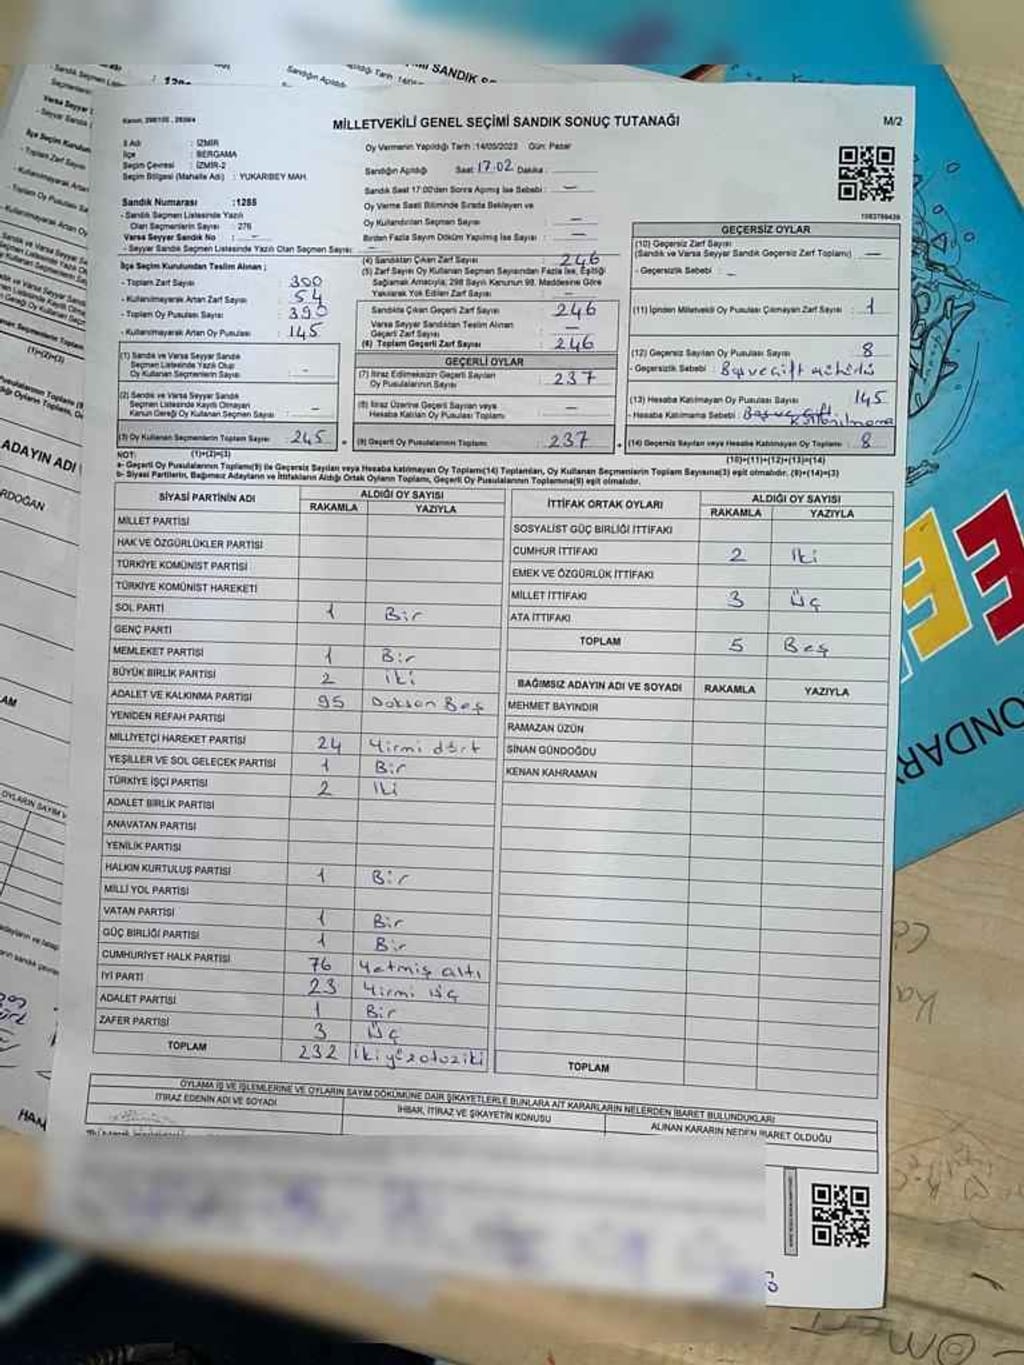 MİLLETVEKİLİ GENEL SEÇİMİ SANDIK SONUÇ TUTANAĞI
M/2
İl Adı : İZMİR
İlçe : BERGAMA
Seçim Çevresi : İZMİR-2
Seçim Bölgesi (Mahalle Adı) : YUKARIBEY MAH.
Oy Vermenin Yapıldığı Tarih :14/05/2023 Gün: Pazar
Sandığın Açıldığı Saat 17.02 Dakika :
Sandık Saat 17:00'den Sonra Açılmış İse Sebebi : —
Oy Verme Saati Bitiminde Sırada Bekleyen ve
Oy Kullandırılan Seçmen Sayısı : —
Birden Fazla Sayım Döküm Yapılmış İse Sayısı : —
Sandık Numarası :1285
- Sandık Seçmen Listesinde Yazılı
Olan Seçmenlerin Sayısı : 276
Varsa Seyyar Sandık No : -
- Seyyar Sandık Seçmen Listesinde Yazılı Olan Seçmen Sayısı:
İlçe Seçim Kurulundan Teslim Alınan ;
- Toplam Zarf Sayısı : 300
- Kullanılmayarak Artan Zarf Sayısı : 54
- Toplam Oy Pusulası Sayısı : 390
- Kullanılmayarak Artan Oy Pusulası : 145
(1) Sandık ve Varsa Seyyar Sandık
Seçmen Listesinde Yazılı Olup
Oy Kullanan Seçmenlerin Sayısı : -
(2) Sandık ve Varsa Seyyar Sandık
Seçmen Listesinde Kaydı Olmayan
Kanun Gereği Oy Kullanan Seçmen Sayısı : -
(3) Oy Kullanan Seçmenlerin Toplam Sayısı : 245
(1)+(2)=(3)
(4) Sandıktan Çıkan Zarf Sayısı : 246
(5) Zarf Sayısı Oy Kullanan Seçmen Sayısından Fazla İse, Eşitliği
Sağlamak Amacıyla; 298 Sayılı Kanunun 98. Maddesine Göre
Yakılarak Yok Edilen Zarf Sayısı : —
Sandıkta Çıkan Geçerli Zarf Sayısı : 246
Varsa Seyyar Sandıktan Teslim Alınan
Geçerli Zarf Sayısı : —
(6) Toplam Geçerli Zarf Sayısı : 246
GEÇERLİ OYLAR
(7) İtiraz Edilmeksizin Geçerli Sayılan
Oy Pusulalarının Sayısı : 237
(8) İtiraz Üzerine Geçerli Sayılan veya
Hesaba Katılan Oy Pusulası Toplamı : —
(9) Geçerli Oy Pusulalarının Toplamı : 237
GEÇERSİZ OYLAR
(10) Geçersiz Zarf Sayısı
(Sandık ve Varsa Seyyar Sandık Geçersiz Zarf Toplamı) : —
- Geçersizlik Sebebi : -
(11) İçinden Milletvekili Oy Pusulası Çıkmayan Zarf Sayısı : 1
(12) Geçersiz Sayılan Oy Pusulası Sayısı : 8
- Geçersizlik Sebebi : Boş ve çift mühürlü
(13) Hesaba Katılmayan Oy Pusulası Sayısı : 145
- Hesaba Katılmama Sebebi :
(14) Geçersiz Sayılan veya Hesaba Katılmayan Oy Toplamı : 8
(10)+(11)+(12)+(13)=(14)
NOT:
a- Geçerli Oy Pusulalarının Toplamı(9) ile Geçersiz Sayılan veya Hesaba katılmayan Oy Toplamı(14) Toplamları, Oy Kullanan Seçmenlerin Toplam Sayısına(3) eşit olmalıdır. (9)+(14)=(3)
b- Siyasi Partilerin, Bağımsız Adayların ve İttifakların Aldığı Ortak Oyların Toplamı, Geçerli Oy Pusulalarının Toplamına(9) eşit olmalıdır.
SİYASİ PARTİNİN ADI ALDIĞI OY SAYISI
RAKAMLA YAZIYLA
MİLLET PARTİSİ
HAK VE ÖZGÜRLÜKLER PARTİSİ
TÜRKİYE KOMÜNİST PARTİSİ
TÜRKİYE KOMÜNİST HAREKETİ
SOL PARTİ 1 Bir
GENÇ PARTİ
MEMLEKET PARTİSİ 1 Bir
BÜYÜK BİRLİK PARTİSİ 2 İki
ADALET VE KALKINMA PARTİSİ 95 Doksan Beş
YENİDEN REFAH PARTİSİ
MİLLİYETÇİ HAREKET PARTİSİ 24 Yirmi dört
YEŞİLLER VE SOL GELECEK PARTİSİ 1 Bir
TÜRKİYE İŞÇİ PARTİSİ 2 İki
ADALET BİRLİK PARTİSİ
ANAVATAN PARTİSİ
YENİLİK PARTİSİ
HALKIN KURTULUŞ PARTİSİ 1 Bir
MİLLİ YOL PARTİSİ
VATAN PARTİSİ 1 Bir
GÜÇ BİRLİĞİ PARTİSİ 1 Bir
CUMHURİYET HALK PARTİSİ 76 Yetmiş altı
İYİ PARTİ 23 Yirmi üç
ADALET PARTİSİ 1 Bir
ZAFER PARTİSİ 3 Üç
TOPLAM 232 İkiyüzotuziki
İTTİFAK ORTAK OYLARI ALDIĞI OY SAYISI
RAKAMLA YAZIYLA
SOSYALİST GÜÇ BİRLİĞİ İTTİFAKI
CUMHUR İTTİFAKI 2 İki
EMEK VE ÖZGÜRLÜK İTTİFAKI
MİLLET İTTİFAKI 3 Üç
ATA İTTİFAKI
TOPLAM 5 Beş
BAĞIMSIZ ADAYIN ADI VE SOYADI RAKAMLA YAZIYLA
MEHMET BAYINDIR
RAMAZAN ÜZÜN
SİNAN GÜNDOĞDU
KENAN KAHRAMAN
TOPLAM
OYLAMA İŞ VE İŞLEMLERİNE VE OYLARIN SAYIM DÖKÜMÜNE DAİR ŞİKAYETLERLE BUNLARA AİT KARARLARIN NELERDEN İBARET BULUNDUKLARI
İTİRAZ EDENİN ADI VE SOYADI
İHBAR, İTİRAZ VE ŞİKAYETİN KONUSU
ALINAN KARARIN NEDEN İBARET OLDUĞU